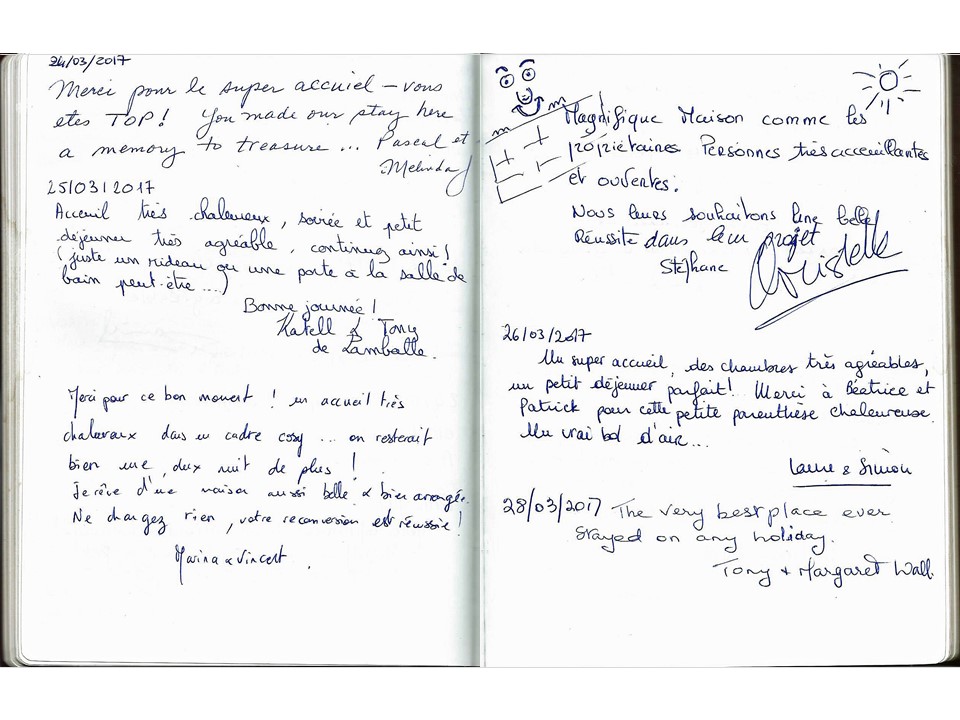 24/03/2017
Merci pour le super accuiel – vous
etes TOP! You made our stay here
a memory to treasure ... Pascal et
Melinda
25/03/2017
Acceuil très chaleureux, soirée et petit
déjeuner très agréable, continuez ainsi!
(juste un rideau ou une porte à la salle de
bain peut-être ...)
Bonne journée!
Katell & Tony
de Lamballe.
Merci pour ce bon moment ! un accueil très
chaleureux dans un cadre cosy ... on resterait
bien une, deux nuit de plus !
Je rêve d'une maison aussi belle & bien arrangée.
Ne changez rien, votre reconversion est réussie !
Marina & Vincent.
Magnifique Maison comme les
propriétaires Personnes très acceuillantes
et ouvertes.
Nous leurs souhaitons Une belle
Réussite dans leur projet
Stéphane Christelle
26/03/2017
Un super accueil, des chambres très agréables,
un petit déjeuner parfait! Merci à Béatrice et
Patrick pour cette petite parenthèse chaleureuse.
Un vrai bol d'air...
Laure & Simon
28/03/2017 The very best place ever
stayed on any holiday.
Tony + Margaret Wall.